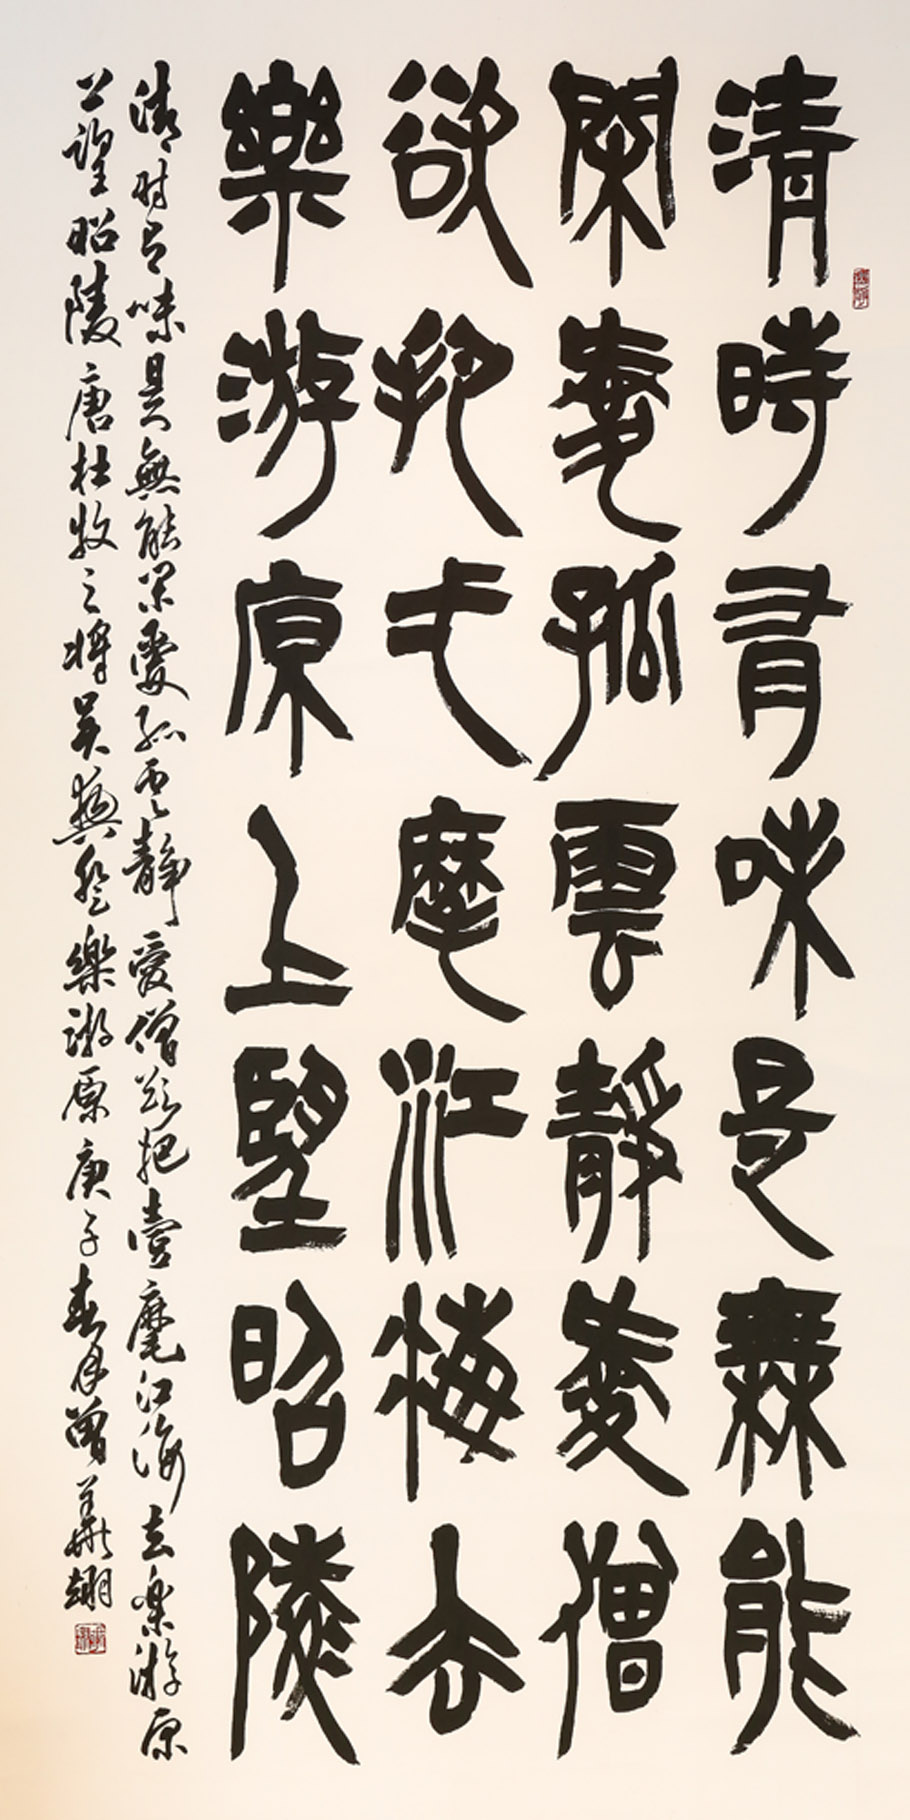 清時有味是無能
閑愛孤雲靜愛僧
欲把弌麾江海去
樂游原上望昭陵
清时有味是無能闲愛孤雲靜愛僧欲把壹麾江海去樂游原
上望昭陵唐杜牧之將吳興登樂游原庚子春月曾